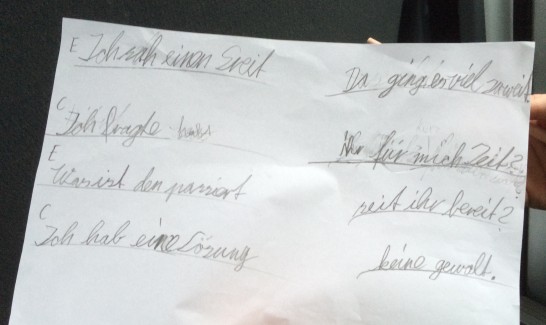 E Ich sah einen Streit Da ging es viel zu weit
C Ich fragte habt ihr für mich Zeit?
E Was ist den passiert seit ihr bereit?
C Ich hab eine Lösung keine gewalt.